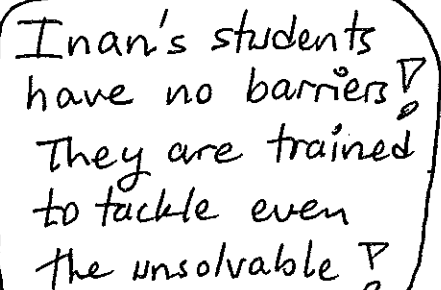 Inan's students
have no barriers!
They are trained
to tackle even
the unsolvable!